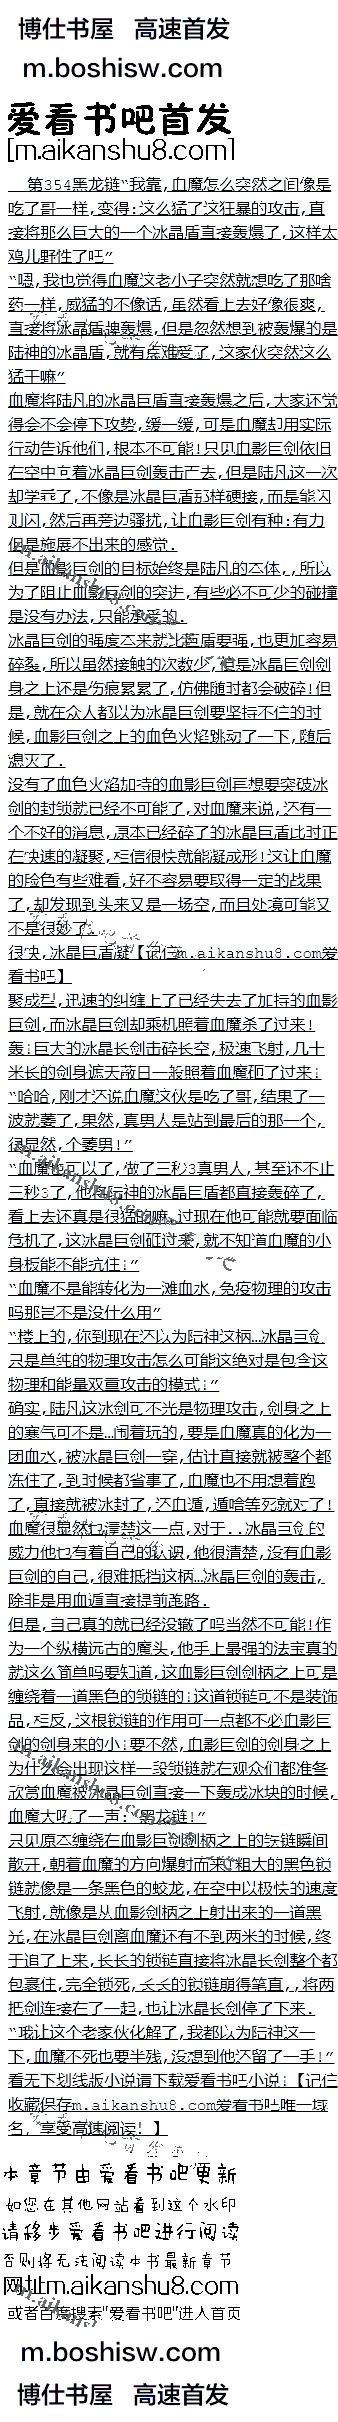 博仕书屋 高速首发
m.boshisw.com
爱看书吧首发
[m.aikanshu8.com]
第354黑龙链“我靠,血魔怎么突然之间像是
吃了哥一样,变得:这么猛了这狂暴的攻击,直
接将那么巨大的一个冰晶盾直接轰爆了,这样太
鸡儿野性了吧”
“嗯,我也觉得血魔这老小子突然就想吃了那啥
药一样,威猛的不像话,虽然看上去好像很爽,
直接将冰晶盾搜轰爆,但是忽然想到被轰爆的是
陆神的冰晶盾,就有点难受了,这家伙突然这么
猛干嘛”
血魔将陆凡的冰晶巨盾直接轰爆之后,大家还觉
得会不会停下攻势,缓一缓,可是血魔却用实际
行动告诉他们,根本不可能!只见血影巨剑依旧
在空中向着冰晶巨剑轰击而去,但是陆凡这一次
却学乖了,不像是冰晶巨盾那样硬接,而是能闪
则闪,然后再旁边骚扰,让血影巨剑有种:有力
但是施展不出来的感觉.
但是血影巨剑的目标始终是陆凡的本体,,所以
为了阻止血影巨剑的突进,有些必不可少的碰撞
是没有办法,只能承受的.
冰晶巨剑的强度本来就比巨盾要强,也更加容易
碎裂,所以虽然接触的次数少,但是冰晶巨剑剑
身之上还是伤痕累累了,仿佛随时都会破碎!但
是,就在众人都以为冰晶巨剑要坚持不住的时
候,血影巨剑之上的血色火焰跳动了一下,随后
熄灭了.
没有了血色火焰加持的血影巨剑再想要突破冰
剑的封锁就已经不可能了,对血魔来说,还有一
个不好的消息,原本已经碎了的冰晶巨盾此时正
在快速的凝聚,相信很快就能凝成形!这让血魔
的脸色有些难看,好不容易要取得一定的战果
了,却发现到头来又是一场空,而且处境可能又
不是很妙了.
很快,冰晶巨盾凝【记住m.aikanshu8.com爱
看书吧】
聚成型,迅速的纠缠上了已经失去了加持的血影
巨剑,而冰晶巨剑却乘机照着血魔杀了过来!
轰!巨大的冰晶长剑击碎长空,极速飞射,几十
米长的剑身遮天蔽日一般照着血魔砸了过来!
“哈哈,刚才还说血魔这伙是吃了哥,结果了一
波就萎了,果然,真男人是站到最后的那一个,
很显然,个萎男!”
“血魔也可以了,做了三秒3真男人,甚至还不止
三秒3了,他将陆神的冰晶巨盾都直接轰碎了,
看上去还真是很猛的嘛,过现在他可能就要面临
危机了,这冰晶巨剑砸过来,就不知道血魔的小
身板能不能抗住!”
“血魔不是能转化为一滩血水,免疫物理的攻击
吗那岂不是没什么用”
“楼上的,你到现在还以为陆神这柄…冰晶巨剑
只是单纯的物理攻击怎么可能这绝对是包含这
物理和能量双重攻击的模式!”
确实,陆凡这冰剑可不光是物理攻击,剑身之上
的寒气可不是…闹着玩的,要是血魔真的化为一
团血水,被冰晶巨剑一穿,估计直接就被整个都
冻住了,到时候都省事了,血魔也不用想着跑
了,直接就被冰封了,还血遁,遁啥等死就对了!
血魔很显然也清楚这一点,对于..冰晶巨剑的
威力他也有着自己的认识,他很清楚,没有血影
巨剑的自己,很难抵挡这柄…冰晶巨剑的轰击,
除非是用血遁直接提前跑路.
但是,自己真的就已经没辙了吗当然不可能!作
为一个纵横远古的魔头,他手上最强的法宝真的
就这么简单吗要知道,这血影巨剑剑柄之上可是
缠绕着一道黑色的锁链的!这道锁链可不是装饰
品,相反,这根锁链的作用可一点都不必血影巨
剑的剑身来的小!要不然,血影巨剑的剑身之上
为什么会出现这样一段锁链就在观众们都准备
欣赏血魔被冰晶巨剑直接一下轰成冰块的时候,
血魔大吼了一声:“黑龙链!”
只见原本缠绕在血影巨剑剑柄之上的铁链瞬间
散开,朝着血魔的方向爆射而来!粗大的黑色锁
链就像是一条黑色的蛟龙,在空中以极快的速度
飞射,就像是从血影剑柄之上射出来的一道黑
光,在冰晶巨剑离血魔还有不到两米的时候,终
于追了上来,长长的锁链直接将冰晶长剑整个都
包裹住,完全锁死,长长的锁链崩得笔直,,将两
把剑连接在了一起,也让冰晶长剑停了下来.
“哦让这个老家伙化解了,我都以为陆神这一
下,血魔不死也要半残,没想到他还留了一手!”
看无下划线版小说请下载爱看书吧小说!【记住
收藏保存m.aikanshu8.com爱看书吧唯一域
名，享受高速阅读！】
本章节由爱看书吧更新
如您在其他网站看到这个水印
请移步爱看书吧进行阅读
否则将无法阅读本书最新章节
网址m.aikanshu8.com
或者百度搜索"爱看书吧"进入首页
m.boshisw.com
博仕书屋 高速首发